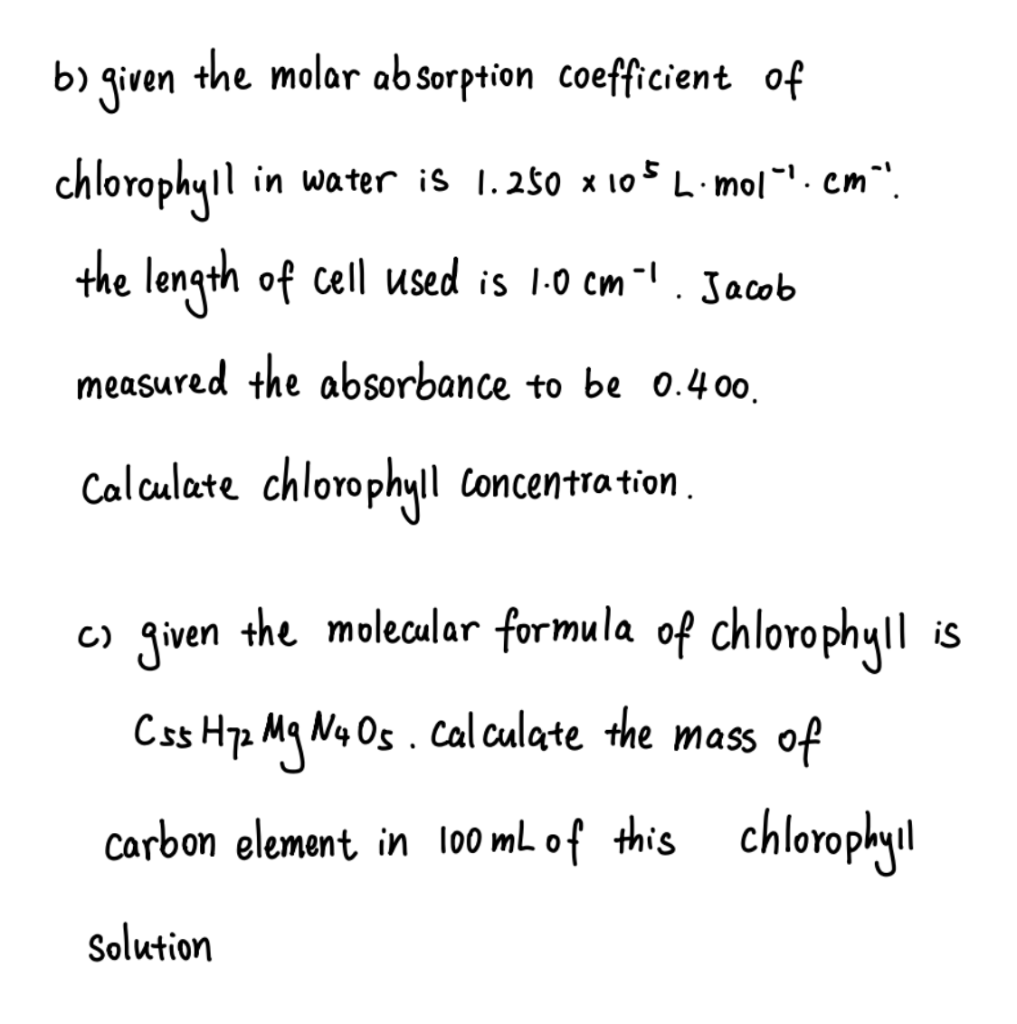 b) given the molar absorption coefficient of
chlorophyll in water is 1.250 x 10⁵ L·mol⁻¹·cm⁻¹.
the length of cell used is 1.0 cm⁻¹. Jacob
measured the absorbance to be 0.400.
Calculate chlorophyll concentration.
c) given the molecular formula of chlorophyll is
C₅₅H₇₂MgN₄O₅. calculate the mass of
carbon element in 100 mL of this chlorophyll
solution